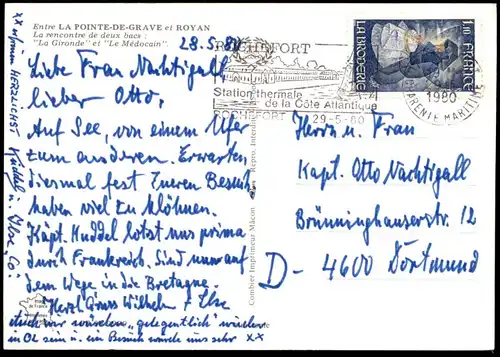 Entre LA POINTE-DE-GRAVE et ROYAN
La rencontre de deux bacs :
"La Gironde" et "Le Médocain".
28.5.80
Liebe Frau Nachtigall
lieber Otto,
Auf See, von einem Ufer
zum anderen. Erwarten
diesmal fest Eueren Besuch,
haben viel zu klöhnen.
Käpt. Kuddel lotst uns prima
durch Frankreich. Sind nun auf
dem Wege in die Bretagne.
Herzl. Gruss Wilhelm + Ilse
würden "gelegentlich" wieder
in OL sein u. ein Besuch würde uns sehr xx
xx HERZLICHST Kuddel u. Ilse,
Combier Imprimeur Mâcon
ROCHEFORT
Station thermale
de la Côte Atlantique
ROCHEFORT
29-5-80
1980
CHARENTE MARITIME
1,10 FRANCE
LA BRODERIE
Herrn u. Frau
Kapt. Otto Nachtigall
Brünninghauserstr. 12
D- 4600 Dortmund